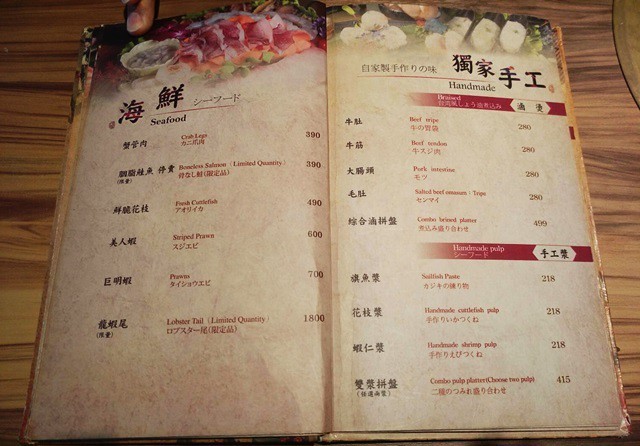 海鮮 シーフード
Seafood
蟹管肉 Crab Legs 390
カニ爪肉
胭脂鮭魚 停賣 Boneless Salmon（Limited Quantity） 390
(限量) 骨なし鮭（限定品）
鮮脆花枝 Fresh Cuttlefish 490
アオリイカ
美人蝦 Striped Prawn 600
スジエビ
巨明蝦 Prawns 700
タイショウエビ
龍蝦尾 Lobster Tail（Limited Quantity） 1800
(限量) ロブスター尾（限定品）
自家製手作りの味 獨家手工
Handmade
Braised
台湾風しょう油煮込み 滷燙
牛肚 Beef tripe 280
牛の胃袋
牛筋 Beef tendon 280
牛スジ肉
大腸頭 Pork intestine 280
モツ
毛肚 Salted beef omasum : Tripe 280
センマイ
綜合滷拼盤 Combo brined platter 499
煮込み盛り合わせ
Handmade pulp
シーフード 手工漿
旗魚漿 Sailfish Paste 218
カジキの練り物
花枝漿 Handmade cuttlefish pulp 218
手作りいかつくね
蝦仁漿 Handmade shrimp pulp 218
手作りえびつくね
雙漿拼盤 Combo pulp platter(Choose two pulp) 415
二種のつみれ盛り合わせ